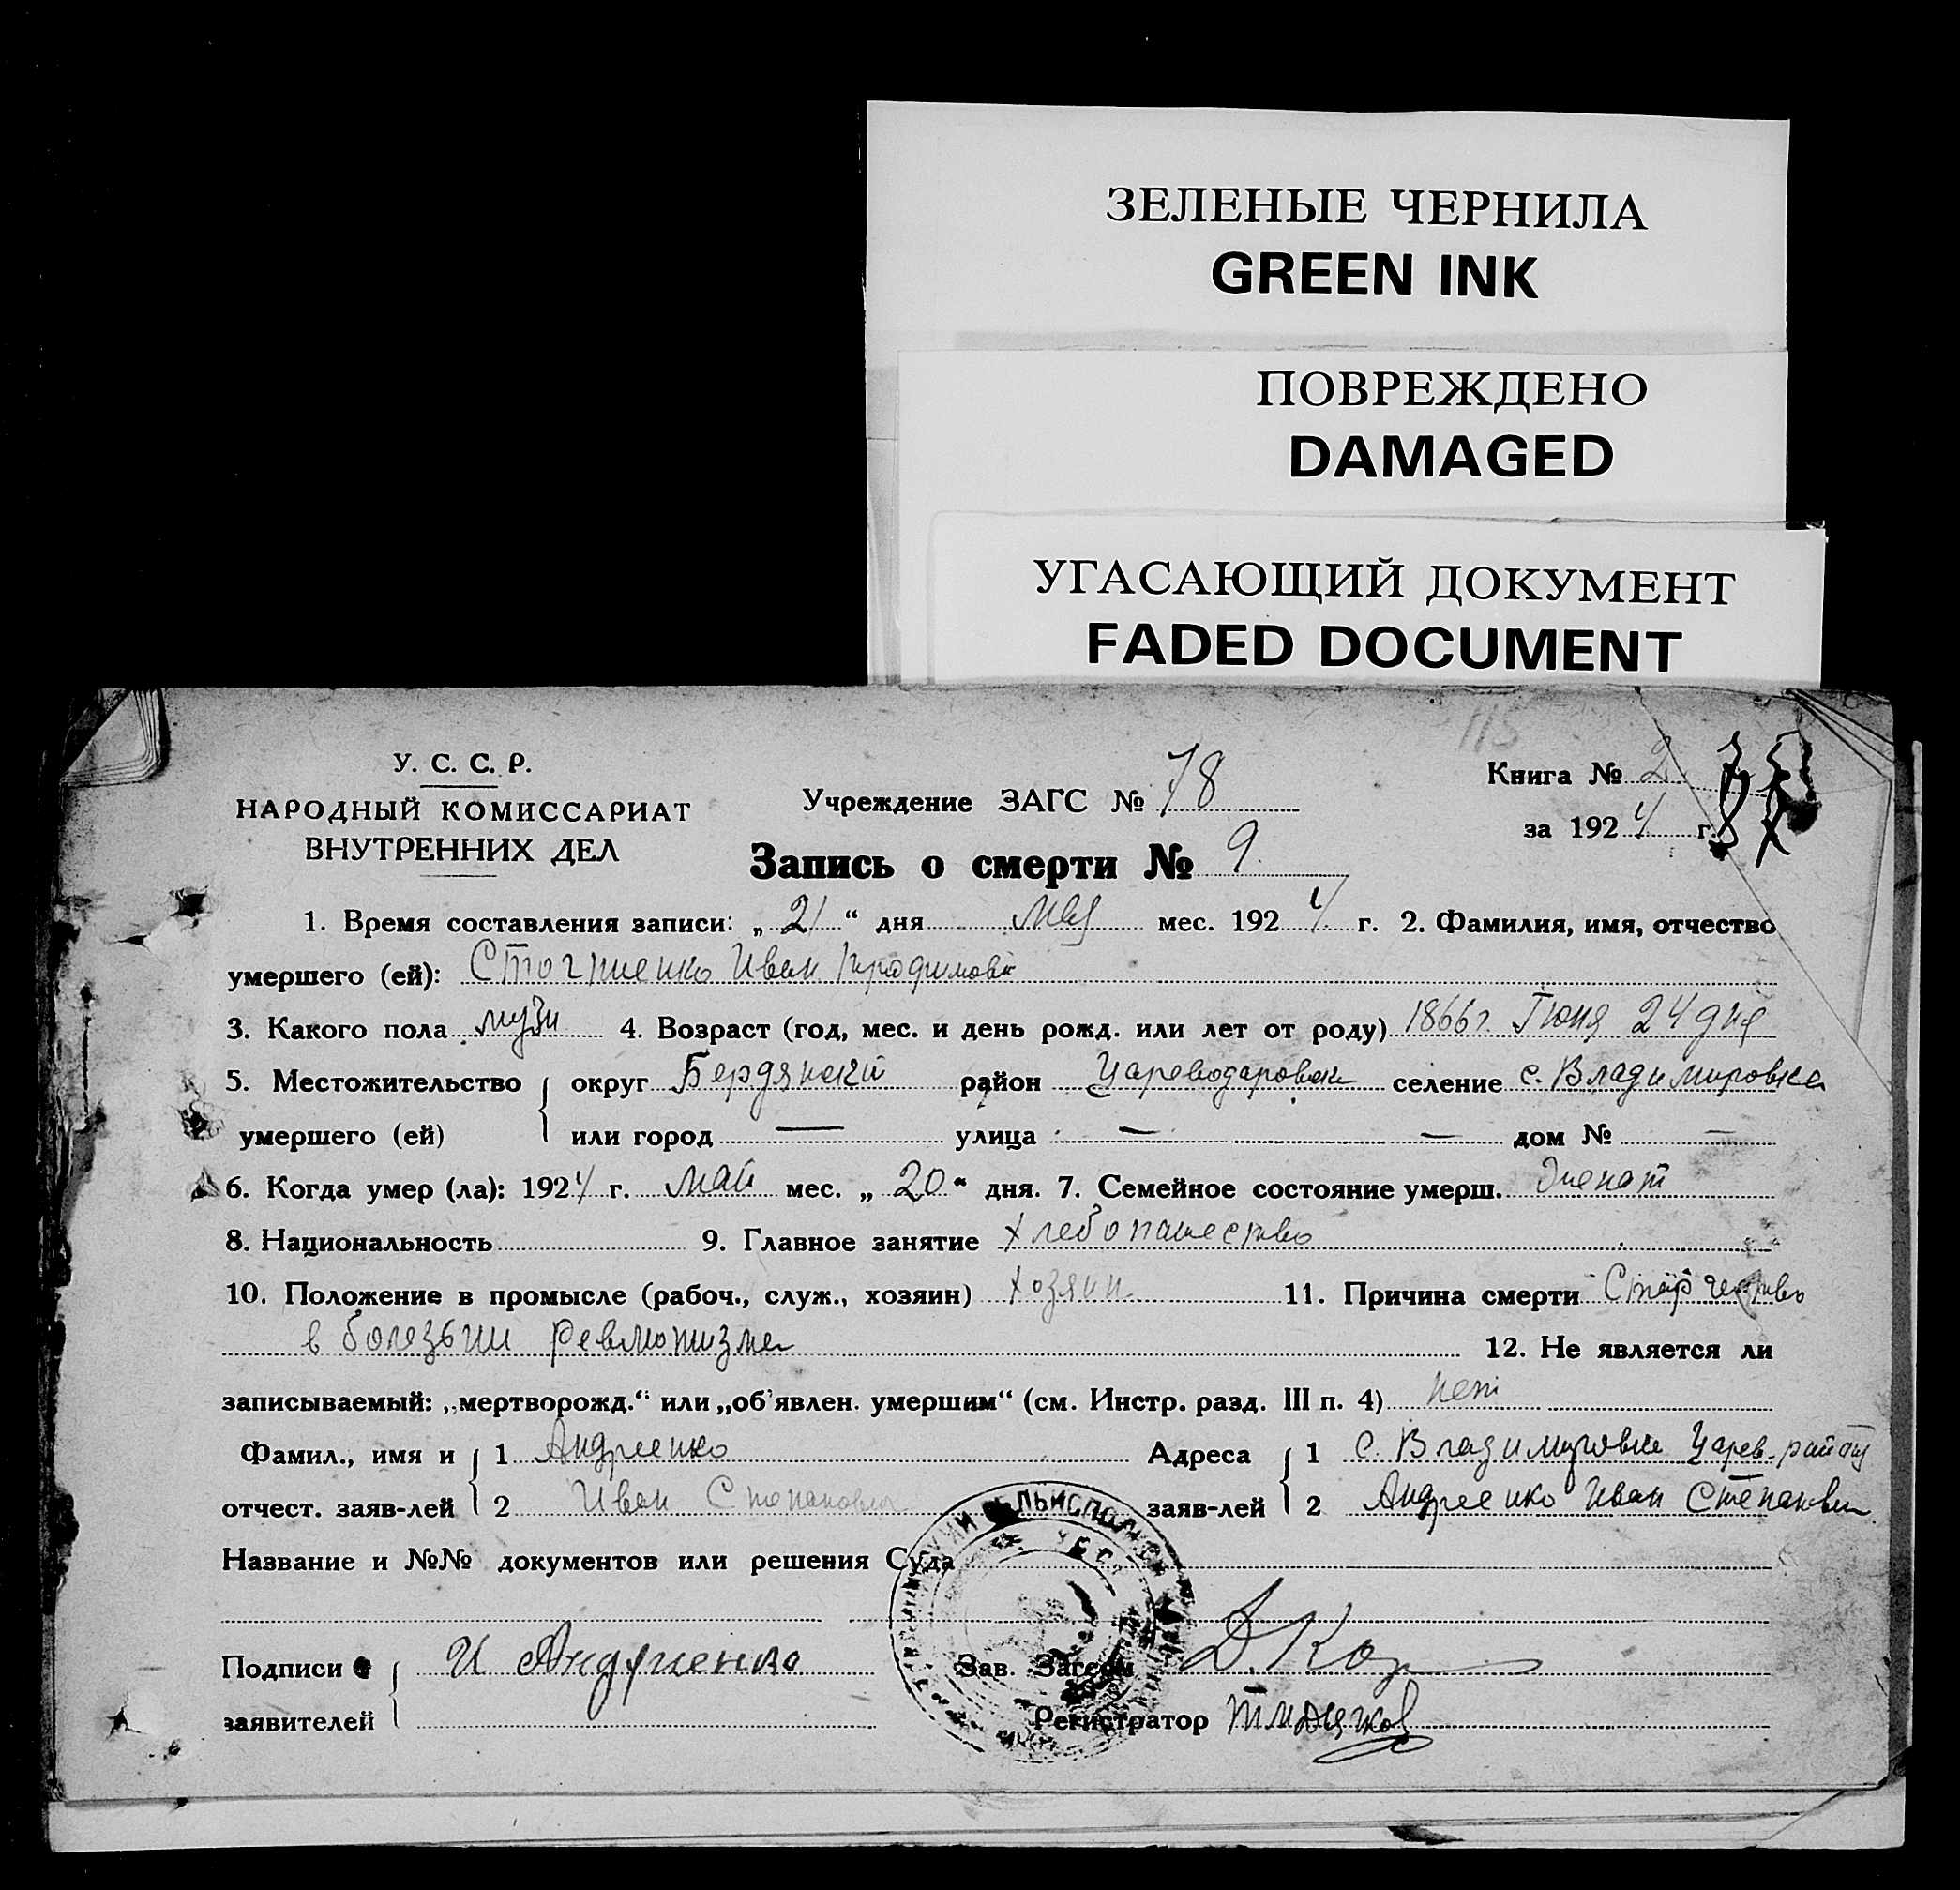 ЗЕЛЕНЫЕ ЧЕРНИЛА
GREEN INK
ПОВРЕЖДЕНО
DAMAGED
УГАСАЮЩИЙ ДОКУМЕНТ
FADED DOCUMENT
115
У. С. С. Р.
НАРОДНЫЙ КОМИССАРИАТ
ВНУТРЕННИХ ДЕЛ
Учреждение ЗАГС № 78
Книга № 2
за 1924 г.
Запись о смерти № 9
1. Время составления записи: „21“ дня мая мес. 1924 г. 2. Фамилия, имя, отчество
умершего (ей): Стогниенко Иван
3. Какого пола 4. Возраст (год, мес. и день рожд. или лет от роду) 1866 г. Июня 24 дня
5. Местожительство округ Бердянский район Цареводаровск селение с. Владимировка
умершего (ей) или город — улица — — дом № —
6. Когда умер (ла): 1924 г. май мес. „20“ дня. 7. Семейное состояние умерш. женат
8. Национальность 9. Главное занятие Хлебопашество
10. Положение в промысле (рабоч., служ., хозяин) хозяин 11. Причина смерти
в болезьни 12. Не является ли
записываемый: „мертворожд.“ или „об'явлен. умершим“ (см. Инстр. разд. III п. 4) нет
Фамил., имя и 1 Андреенко Адреса 1 с. Владимировка Царев. района
отчест. заяв-лей 2 Иван Степанович заяв-лей 2 Андреенко Иван Степанович
Название и №№ документов или решения Суда
Подписи И Андриенко Зав. Загсом Д. Кор
заявителей Регистратор